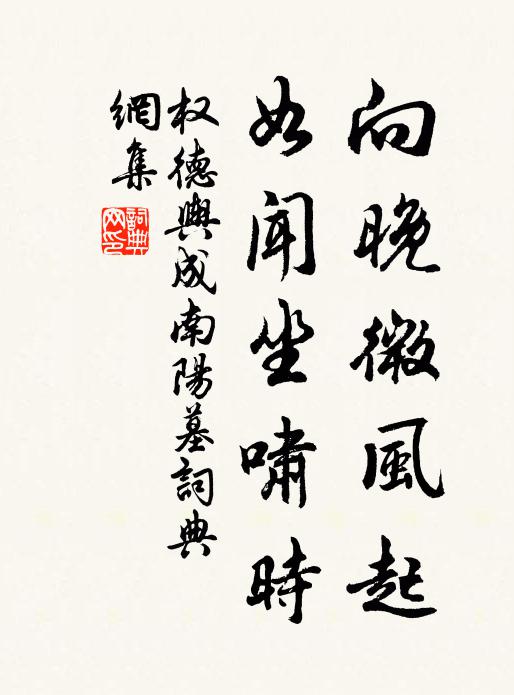 向晚微風起
如聞坐嘯時
权德輿成南陽墓詞典
網集
詞典
网印